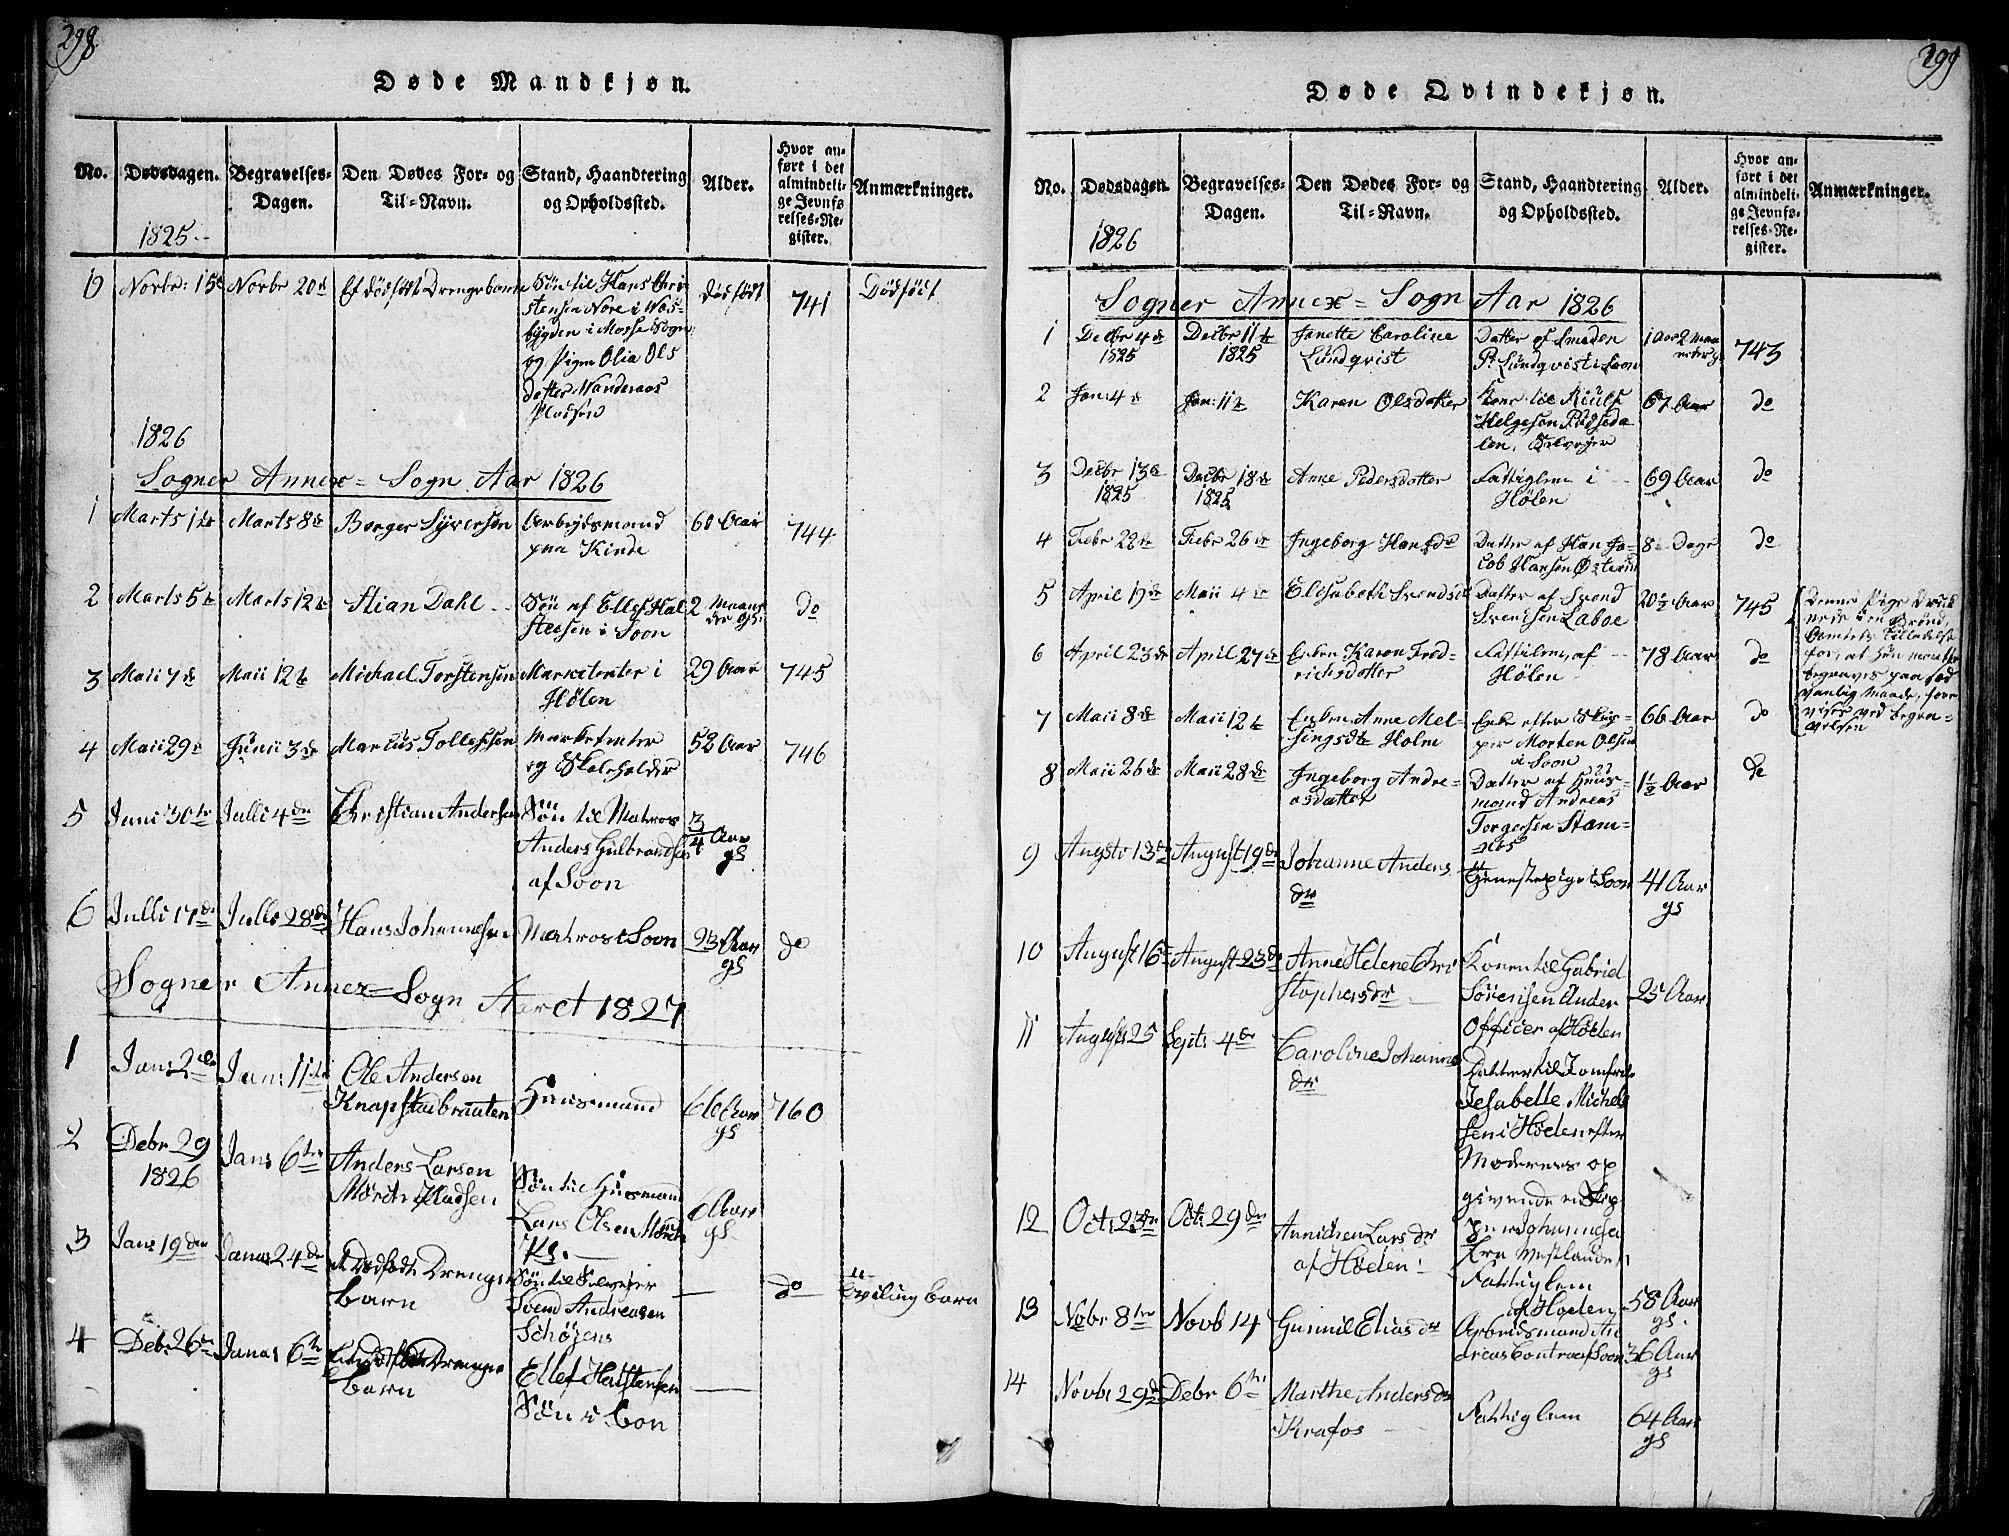 298.
Døde Mandkjøn.
No.
Dødsdagen.
1825.
Begravelses-
Dagen.
Den Dødes For- og
Til-Navn.
Stand, Haandtering
og Opholdssted.
Alder.
Hvor an-
ført i det
almindeli-
ge Jevnfø-
relses-Re-
gister.
Anmærkninger.
Novbr: 15de Novbr 20de Et dødfødt Drengebarn Søn til Hans Chri
stensen Nore i Waa-
bygden i Mosse Sogn
og Pigen Olia Ols
datter Wanderaas
Pladsen
dødfødt 741 Dødfødt
1826
Sogner Annex = Sogn Aar 1826
1 Marts 1te Marts 8de Borger Syversen Arbejdsmand
paa Kinde
60 Aar 744
2 Marts 5te Marts 12te Stian Dahl Søn af Ellef Hal
stensen i Soon
2 Maane
der gl. do
3 Maii 7de Maii 12te Michael Torstensen Marketenter i
Hølen
29 Aar 745
4 Maii 29de Junii 3de Marcus Tollefsen Marketenter
og Skoleholder
52 Aar 746
5 Juni 30te Julli 4de Christian Andersen Søn til Matros
Anders Gulbrandsen
af Soon
3/4 Aar
gl
6 Julli 17de Julli 28de Hans Johannesen Matros i Soon 23 Aar
gl
do
Sogner Annex = Sogn Aaret 1827
1 Jan: 2den Jan: 11te Ole Andersen
Knapstadbraaten
Huusmand 66 Aar
gl
760
2 Debr 29
1826
Jans 6te Anders Larsen
Mørch Pladsen
Søn til Huusmand
Lars Olsen Mørch
Pls.
6 Aar
gl
3 Jans 19den Janar 24de et Dødfødt Drenge
barn
Søn til Selvejer
Svend Andreasen
do Tvilling barn
4 Debr 26de Janar 6te Drenge
barn
Ellef Halstensen
Søn i Son
299
Døde Qvindekjøn.
No.
Dødsdagen.
1826
Begravelses-
Dagen.
Den Dødes For- og
Til-Navn.
Stand, Haandtering
og Opholdssted.
Alder.
Hvor an-
ført i det
almindeli-
ge Jevnfø-
relses-Re-
gister.
Anmærkninger.
Sogner Annex = Sogn Aar 1826
1 Decbr 4de
1825
Decbr 11te
1825
Janette Caroline
Lundqvist
Datter af Smeden
P. Lundqvist i Soon
1 Aar 2 Maa
neder gl
743
2 Jan: 4de Jan: 11te Karen Olsdatter Kone til
Helgesen
len, Selvejer
67 Aar do
3 Decbr 13de
1825
Decbr 18de
1825
Anne Pedersdatter Fattiglem i
Hølen
69 Aar do
4 Febr 22de Febr 26de Ingeborg Hansdr Datter af Han Ja-
cob Hansen
8 Dage do
5 April 19de Maii 4de Elisabeth Svendsdr Datter af Svend
Svendsen Laboe
20 1/2 Aar 745
Denne Pige druk
nede i en Brønd,
Amtets Tilladelse
for, at hun maatte
begraves paa sæd
vanlig Maade, fore
vises ved begra-
velsen
6 April 23de April 27de Enken Karen Fred
richsdatter
Fattiglem, af
Hølen
78 Aar do
7 Maii 8de Maii 12te Enken Anne Mel-
singsdtr Holm
Enke efter Skip-
per Morten Olsen
i Soon
66 Aar do
8 Maii 26de Maii 28de Ingeborg Andre-
asdatter
Datter af Huus-
mand Andreas
Torgersen Stam-
nes
1 1/2 Aar do
9 August 13de August 19de Johanne Anders
dr
Tjenestepige i Soon 41 Aar
gl
10 August 16de August 23de Anne Helene Chri
stophersdr
Konen til Gabriel
Sørensen Under
Officier af Hølen
25 Aar
11 August 25 Septr 4de Caroline Johannes
dr
Datter til Jomfrue
Jesabelle Michel
sen i Hølen efter
Moderens op
givende en Skip
per Johannesen
fra Vestlandet
12 Oct: 23de Oct: 29de Annichen Lars dr
af Hølen
Fattiglem
af Hølen
58 Aar
gl.
13 Nobr 8de Novb 14 Gunnil Elias dr Arbeidsmand An
dreas Contra af Soon
36 Aar
gl
14 Novbr 29de Debr 6te Marthe Anders dr
Krafos
Fattiglem 64 Aar
gl